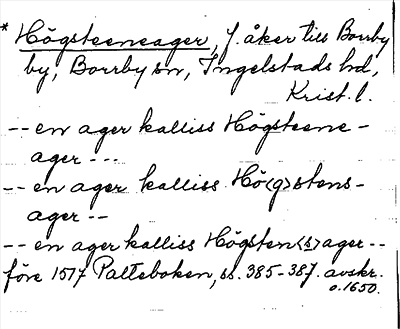 * Högsteeneager, f. åker till Borrby
by, Borrby sn, Ingelstads hd,
Krist. l.
-- en ager kalliss Högsteene-
ager ---
-- en ager kalliss Hö<g>stens-
ager --
-- en ager kalliss Högsten<s>ager --
före 1517 Palteboken, ss. 385-387. avskr.
o. 1650.